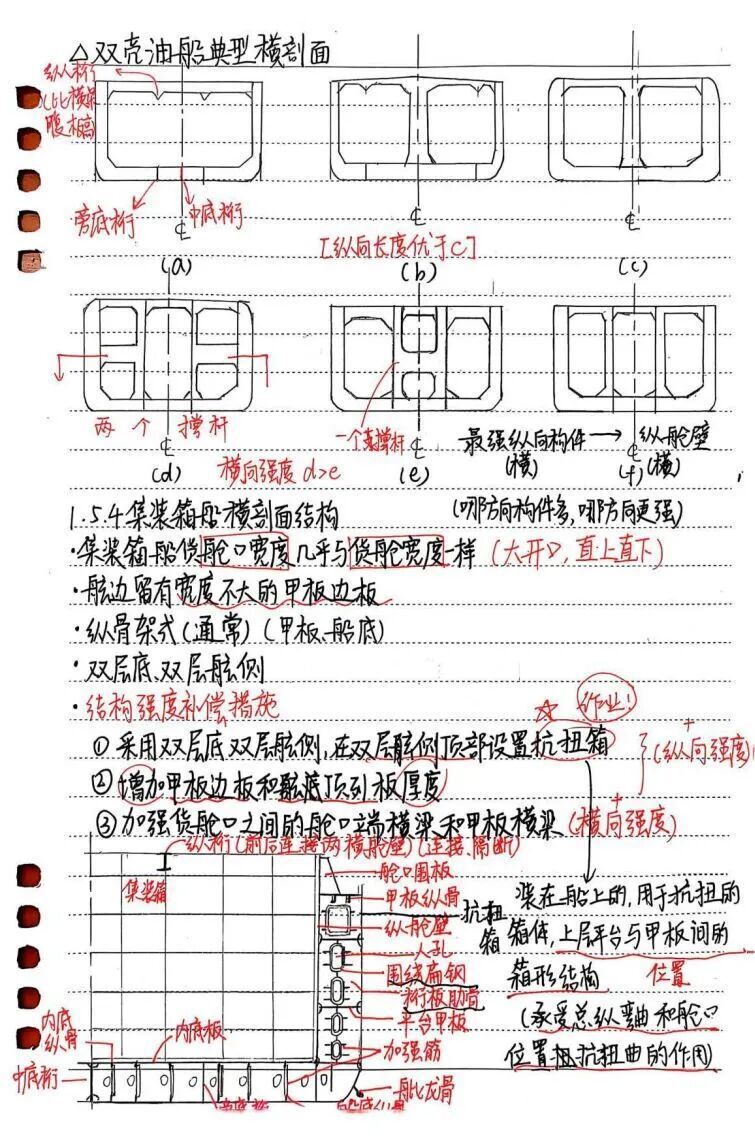 △双壳油船典型横剖面
纵桁
比横梁
腹板高
旁底桁
中底桁
[纵向长度优于c]
(a)
(b)
(c)
两个撑杆
一个支撑杆
最强纵向构件→纵舱壁
(横)
(横)
(d)
横向强度 d>e
(e)
(f)
(哪方向构件多,哪方向更强)
1.5.4集装箱船横剖面结构
·集装箱船货舱口宽度几乎与货舱宽度一样(大开口,直上直下)
·舷边留有宽度不大的甲板边板
·纵骨架式(通常)(甲板、船底)
·双层底、双层舷侧
·结构强度补偿措施
☆
作业!
①采用双层底双层舷侧,在双层舷侧顶部设置抗扭箱
②增加甲板边板和舷顶列板厚度
+
(纵向强度)
③加强货舱口之间的舱口端横梁和甲板横梁
+
(横向强度)
纵桁(前后连接两横舱壁)(连接、隔断)
集装箱
舱口围板
甲板纵骨
抗扭箱
纵舱壁
人孔
围绕扁钢
桁板肋骨
平台甲板
加强筋
舭龙骨
内底纵骨
内底板
中底桁
旁底桁
船底纵骨
装在船上的,用于抗扭的
箱体,上层平台与甲板间的
箱形结构
位置
(承受总纵弯曲和舱口
位置抵抗扭曲的作用)